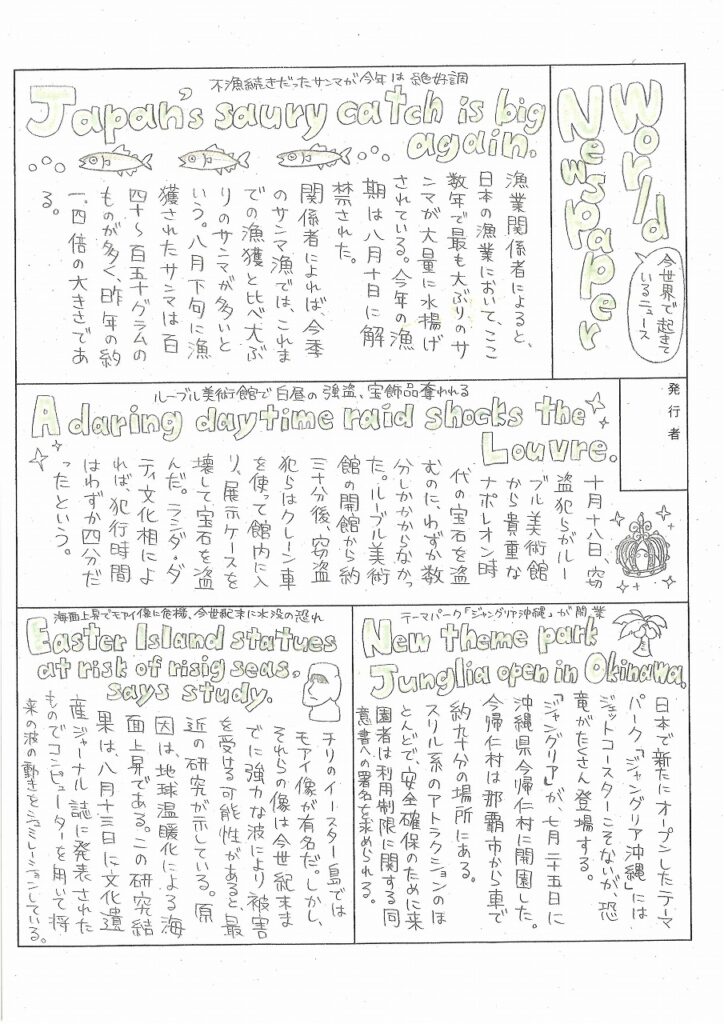 World
Newspaper
今世界で起きて
いるニュース
発行者
不漁続きだったサンマが今年は絶好調
Japan's saury catch is big
again.
漁業関係者によると、
日本の漁業において、ここ
数年で最も大ぶりのサ
ンマが大量に水揚げ
されている。今年の漁
期は八月十日に解
禁された。
関係者によれば、今季
のサンマ漁では、これま
での漁獲と比べ大ぶ
りのサンマが多いと
いう。八月下旬に漁
獲されたサンマは百
四十〜百五十グラムの
ものが多く、昨年の約
一.四倍の大きさであ
る。
ルーブル美術館で白昼の強盗、宝飾品奪われる
A daring daytime raid shocks the
Louvre.
十月十八日、窃
盗犯らがルー
ブル美術館
から貴重な
ナポレオン時
代の宝石を盗
むのに、わずか数
分しかかからなかっ
た。ルーブル美術
館の開館から約
三十分後、窃盗
犯らはクレーン車
を使って館内に入
り、展示ケースを
壊して宝石を盗
んだ。ラシダ・ダ
ティ文化相によ
れば、犯行時間
はわずか四分だ
ったという。
テーマパーク「ジャングリア沖縄」が開業
New theme park
Junglia open in Okinawa.
日本で新たにオープンしたテーマ
パーク「ジャングリア沖縄」には
ジェットコースターこそないが、恐
竜がたくさん登場する。
「ジャングリア」が、七月二十五日に
沖縄県今帰仁村に開園した。
今帰仁村は那覇市から車で
約九十分の場所にある。
スリル系のアトラクションのほ
とんどで、安全確保のために来
園者は利用制限に関する同
意書への署名を求められる。
海面上昇でモアイ像に危機、今世紀末に水没の恐れ
Easter Island statues
at risk of risig seas,
says study.
チリのイースター島では
モアイ像が有名だ。しかし、
それらの像は今世紀末ま
でに強力な波により被害
を受ける可能性があると、最
近の研究が示している。原
因は、地球温暖化による海
面上昇である。この研究結
果は、八月十三日に文化遺
産ジャーナル誌に発表された
ものでコンピューターを用いて将
来の波の動きをシュミレーションしている。